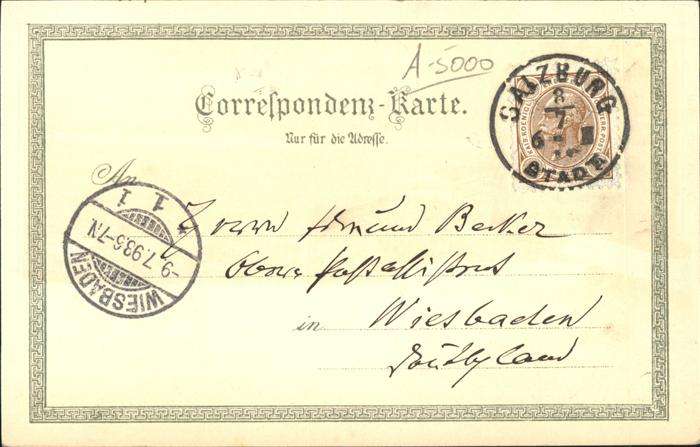 A-5000
Correspondenz-Karte.
Nur für die Adresse.
SALZBURG
8
7
6
STADT
An
1 1
-9.7.93.6-7N
WIESBADEN
Herrn Edmund Becker
in Wiesbaden